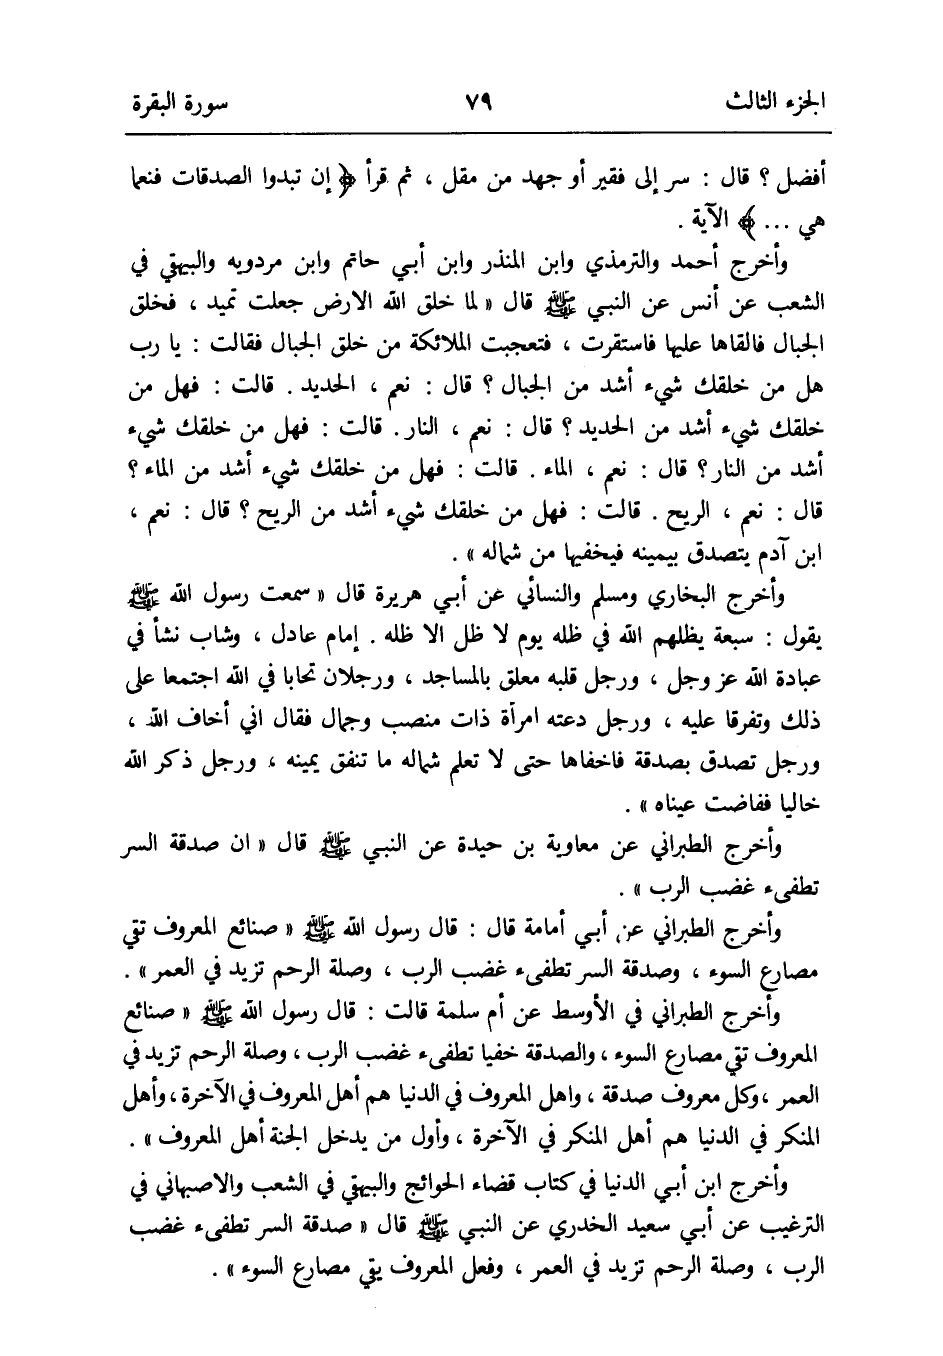 الجزء الثالث ٧٩ سورة البقرة
أفضل ؟ قال : سر إلى فقير أو جهد من مقل ، ثم قرأ ﴿ إن تبدوا الصدقات فنعما
هي ... ﴾ الآية .
وأخرج أحمد والترمذي وابن المنذر وابن أبي حاتم وابن مردويه والبيهقي في
الشعب عن أنس عن النبي ﷺ قال « لما خلق الله الارض جعلت تميد ، فخلق
الجبال فالقاها عليها فاستقرت ، فتعجبت الملائكة من خلق الجبال فقالت : يا رب
هل من خلقك شيء أشد من الجبال ؟ قال : نعم ، الحديد . قالت : فهل من
خلقك شيء أشد من الحديد ؟ قال : نعم ، النار . قالت : فهل من خلقك شيء
أشد من النار ؟ قال : نعم ، الماء . قالت : فهل من خلقك شيء أشد من الماء ؟
قال : نعم ، الريح . قالت : فهل من خلقك شيء أشد من الريح ؟ قال : نعم ،
ابن آدم يتصدق بيمينه فيخفيها من شماله » .
وأخرج البخاري ومسلم والنسائي عن أبي هريرة قال « سمعت رسول الله ﷺ
يقول : سبعة يظلهم الله في ظله يوم لا ظل الا ظله . إمام عادل ، وشاب نشأ في
عبادة الله عز وجل ، ورجل قلبه معلق بالمساجد ، ورجلان تحابا في الله اجتمعا على
ذلك وتفرقا عليه ، ورجل دعته امرأة ذات منصب وجمال فقال اني أخاف الله ،
ورجل تصدق بصدقة فاخفاها حتى لا تعلم شماله ما تنفق يمينه ، ورجل ذكر الله
خاليا ففاضت عيناه » .
وأخرج الطبراني عن معاوية بن حيدة عن النبي ﷺ قال « ان صدقة السر
تطفىء غضب الرب » .
وأخرج الطبراني عن أبي أمامة قال : قال رسول الله ﷺ « صنائع المعروف تقي
مصارع السوء ، وصدقة السر تطفىء غضب الرب ، وصلة الرحم تزيد في العمر » .
وأخرج الطبراني في الأوسط عن أم سلمة قالت : قال رسول الله ﷺ « صنائع
المعروف تقي مصارع السوء ، والصدقة خفيا تطفىء غضب الرب ، وصلة الرحم تزيد في
العمر ، وكل معروف صدقة ، واهل المعروف في الدنيا هم أهل المعروف في الآخرة ، وأهل
المنكر في الدنيا هم أهل المنكر في الآخرة ، وأول من يدخل الجنة أهل المعروف » .
وأخرج ابن أبي الدنيا في كتاب قضاء الحوائج والبيهقي في الشعب والاصبهاني في
الترغيب عن أبي سعيد الخدري عن النبي ﷺ قال « صدقة السر تطفىء غضب
الرب ، وصلة الرحم تزيد في العمر ، وفعل المعروف يقي مصارع السوء » .